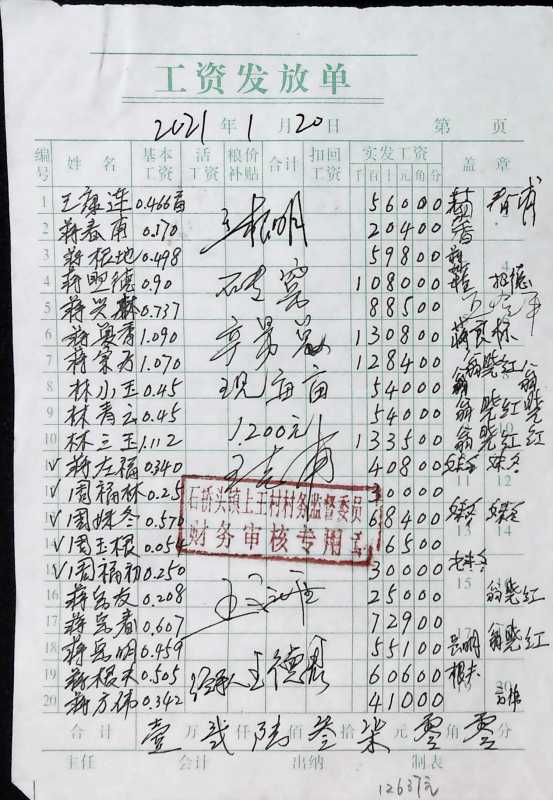 工资发放单
2021年1月20日 第 页
编号 姓名 基本工资 活工资 粮价补贴 合计 扣回工资 实发工资 千百十元角分 盖章
1 王康连 0.466亩 56000
2 蒋春甫 0.170 王根明 20400
3 蒋根地 0.498 59800
4 蒋照德 0.90 砖窑 108000
5 蒋兴林 0.737 88500
6 1.090 130800
7 蒋荣方 1.070 128400 翁晓红
8 林小玉 0.45 现亩亩 54000
9 林青云 0.45 54000 翁晓红
10 林三玉 1.112 1200元/ 133500 翁晓红
√ 蒋左福 0.340 40800
√ 周福林 0.25 30000
√ 周妹冬 0.570 68400
√ 周玉根 0.054 6500
√ 周福初 0.250 30000
石桥头镇上王村村务监督委员
财务审核专用
16 蒋岳友 0.208 25000 翁晓红
17 蒋岳春 0.607 72900
18 蒋岳明 0.459 55100 岳明 翁晓红
19 蒋根夫 0.505 经手人 王德 60600 根夫
20 蒋方伟 0.342 41000
合计 壹万贰仟陆佰叁拾柒元零角零分
主任 会计 出纳 制表
12637元